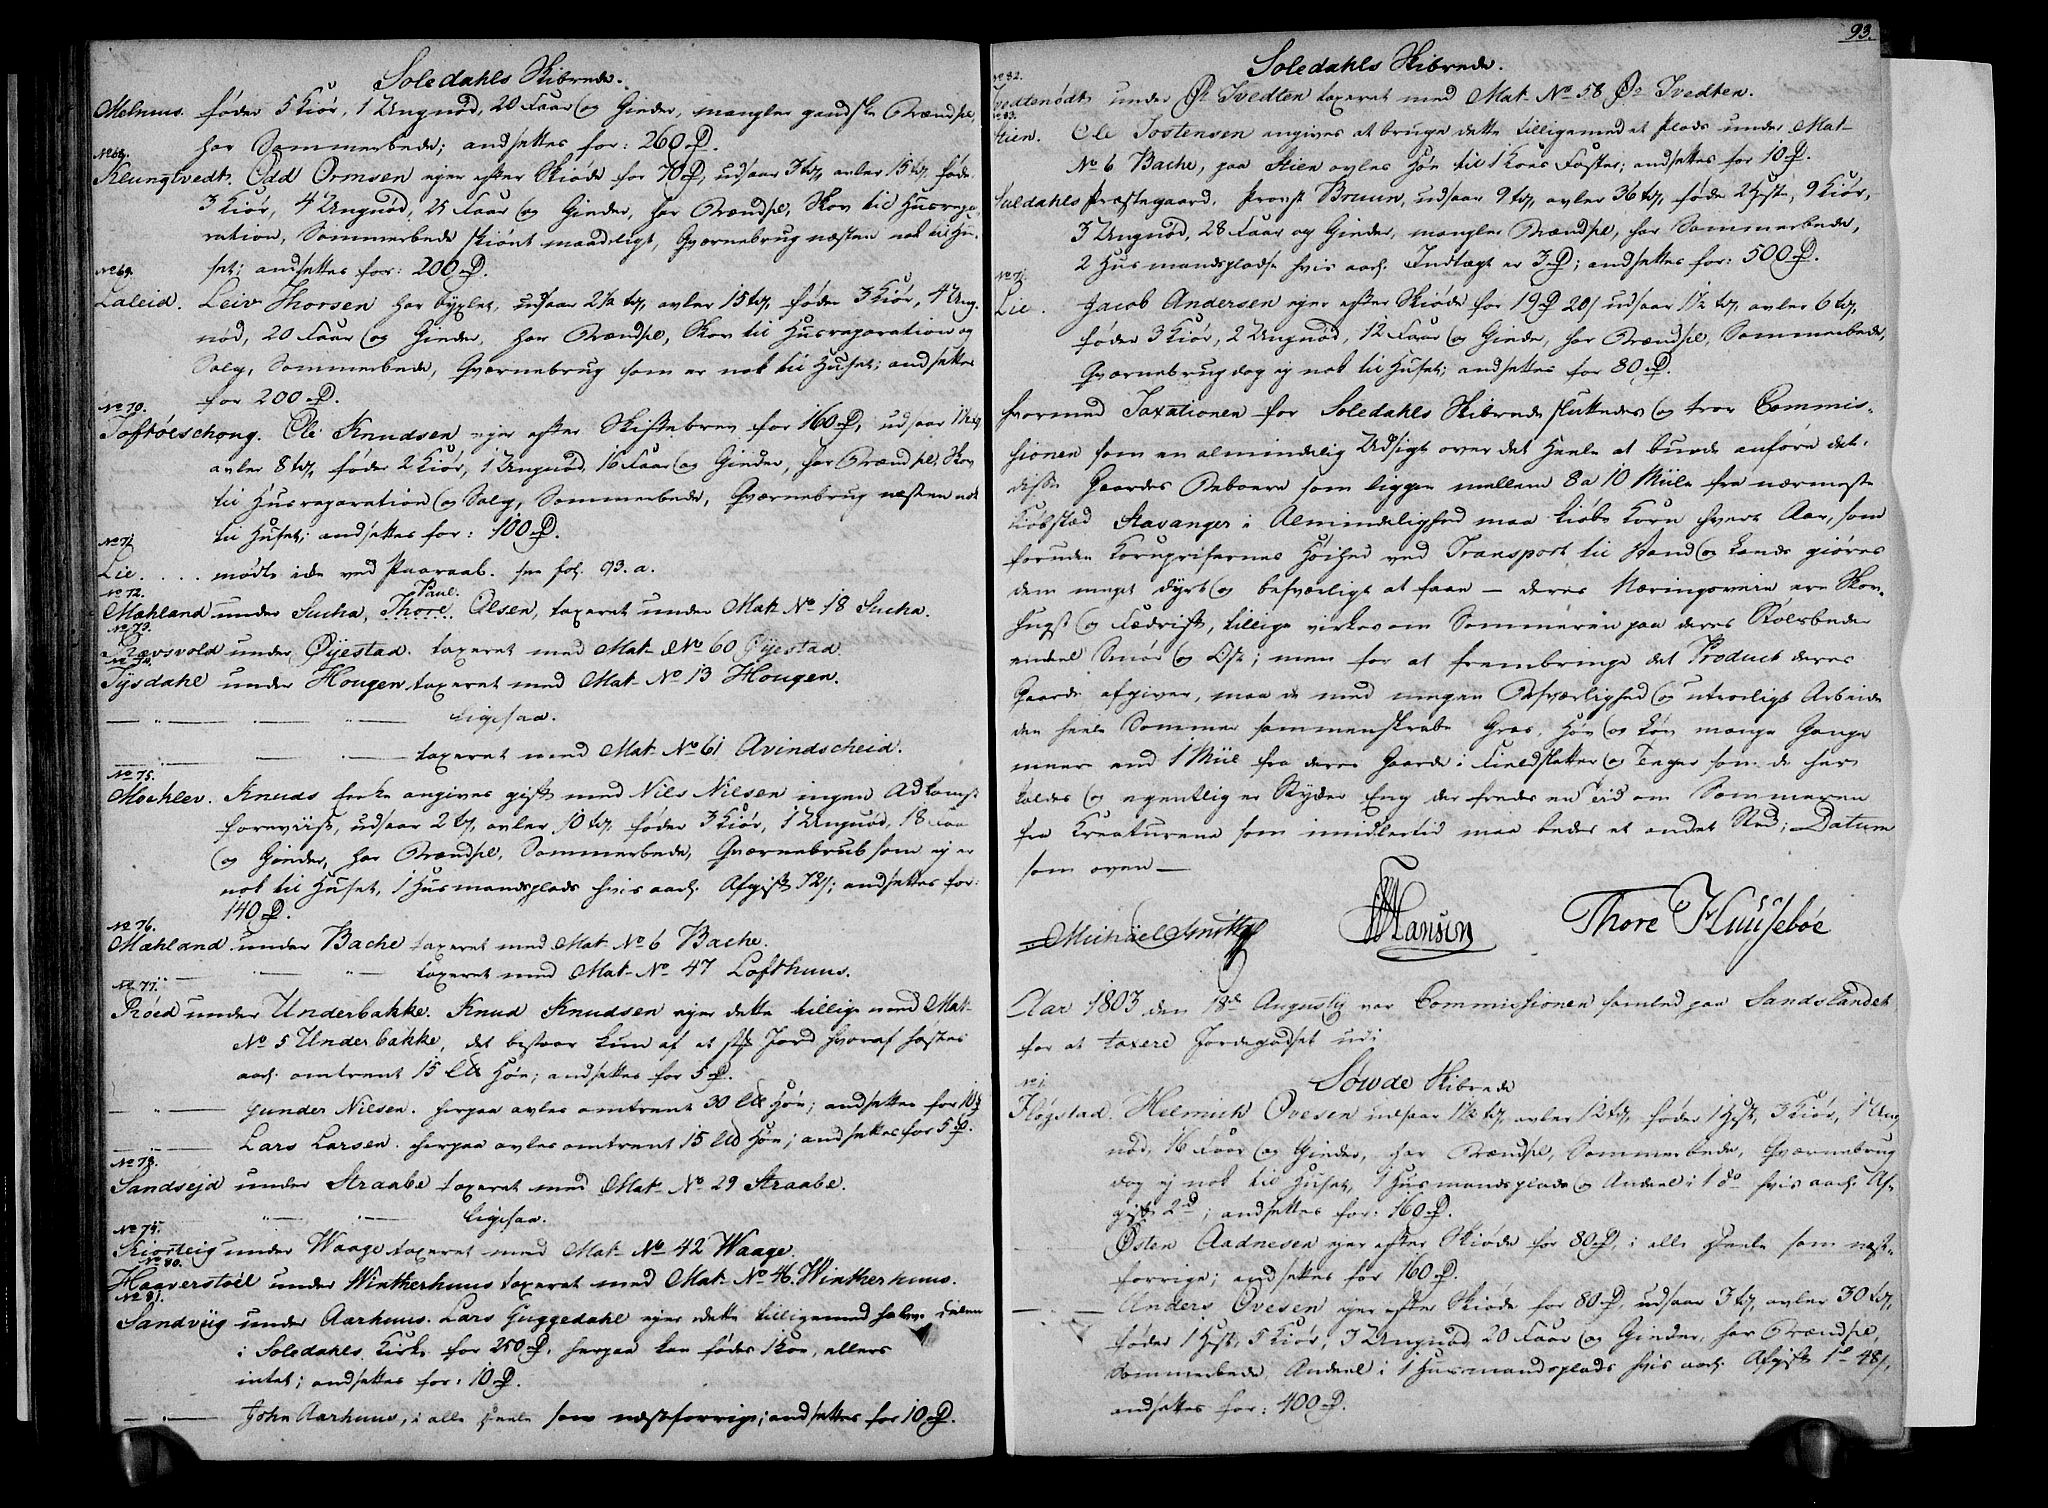 Soledahls Skibrede.
Melhuus. føder 5 Kiør, 1 Ungnød, 20 Faar og Gieder, mangler gandske Brændsel,
har Sommerbede; andsettes for: 260 D.
No 68.
Klungtvedt. Odd Ormsen eyer efter Skiøde for 70 D, udsaar 3 td, avler 15 td, føder
3 Kiør, 4 Ungnød, 25 Faar og Gieder, har Brændsel, Skov til Husrepa-
ration, Sommerbede skiønt maadeligt, Qværnebrug næsten nok til Hu-
set; andsettes for: 200 D.
No 69.
Laleid. Leiv Thorsen har byxlet, udsaar 2 1/2 td, avler 15 td, føder 3 Kiør, 4 Ung-
nød, 20 Faar og Gieder, har Brændsel, Skov til Husreparation og
Salg, Sommerbede, Qværnebrug som er nok til Huset; andsettes
for 200 D.
No 70.
Ole Knudsen eyer efter Skiftebrev for 160 D, udsaar
avler 8 td, føder 2 Kiør, 1 Ungnød, 16 Faar og Gieder, har Brændsel, Skov
til Husreparation og Salg, Sommerbede, Qværnebrug næsten nok
til Huset; andsettes for: 100 D.
No 71
Lie. . . . . mødte ikke ved Paaraab. see fol. 93. a.
No 72. Paul.
Mahland under Sucha, Thore Olsen, taxeret under Mat. No 18 Sucha.
No 73.
Røvsvold under Øyestad. taxeret med Mat. No 60 Øyestad
No 74.
Tysdahl under Hougen taxeret med Mat. No 13 Hougen.
— " — — " — ligesaa.
— " — — " — taxeret med Mat. No 61 Avindscheid.
No 75.
Mochlev. Knuds Enke angives gift med Nils Nilsen ingen Adkomst
foreviist, udsaar 2 td, avler 10 td, føder 3 Kiør, 1 Ungnød, 18 Faar
og Gieder, har Brændsel, Sommerbede, Qværnebrub som ej er
nok til Huset, 1 Husmandsplads hvis aarl. Afgift 72 s; andsettes for:
140 D.
No 76.
Mahland under Bache taxeret med Mat. No 6 Bache.
— " — " — taxeret med Mat. No 47 Lofthuus.
No 77.
Røed under Underbakke. Knud Knudsen eyer dette tillige med Mat.
No 5 Underbakke, det bestaar kun af et stk Jord hvoraf høstes
aarl. omtrent 15 Høe; andsettes for 5 D.
— " — Gunder Nilsen. herpaa avles omtrent 30 Høe; andsettes for 10 D
Lars Larsen. herpaa avles omtrent 15 Høe; andsettes for 5 D.
No 78.
Sandsejd under Straabe taxeret med Mat. No 29 Straabe.
— " — " — ligesaa.
No 79.
Skiorteig under Waage taxeret med Mat. No 42 Waage.
No 80.
Haaverstøel under Wintherhuus taxeret med Mat. No 46. Wintherhuus.
No 81.
Sandviig under Aarhuus. Lars Guggedahl eyer dette tilligemed halve Delen
i Soledahls Kirke for 250 D, herpaa kan fødes 1 Koe, ellers
intet; andsettes for: 10 D.
— " — John Aarhuus, i alle Deele som næstforrige; andsettes for 10 D.
93.
Soledahls Skibrede.
No 82.
Tvedtenødt under Øv. Tvedten taxeret med Mat. No 58 Øv. Tvedten.
No 83.
Stien. Ole Jostensen angives at bruge dette tilligemed et Plads under Mat-
No 6 Bache, paa Stien avles Høe til 1 Koes Foster; andsettes for 10 D.
Suldahls Præstegaard, Provst Bruun, udsaar 9 td, avler 36 td, føder 2 Heste, 9 Kiør,
3 Ungnød, 28 Faar og Gieder, mangler Brændsel, har Sommerbede,
2 Husmandspladse hvis aarl. Indtægt er 3 D; andsettes for: 500 D.
No 71.
Lie. Jacob Andersen eyer efter Skiøde for 19 D 20 s udsaar 1 1/2 td, avler 6 td,
føder 3 Kiør, 2 Ungnød, 12 Faar og Gieder, har Brændsel, Sommerbede,
Qværnebrug dog ej nok til Huset; andsettes for 80 D.
hvormed Taxationen for Soledahls Skibrede sluttedes og troer Commis-
sionen som en almindelig Udsigt over det Heele at burde anføre det:
disse Gaardes Beboere som ligger mellem 8 a 10 Miile fra nærmeste
Kiøbstæd Stavanger i Almindelighed maa kiøbe Korn hvert Aar, som
foruden Kornprisernes Høihed ved Transport til Vand og Lands giøres
dem meget dyrt og besværligt at faae — deres Næringsveie ere Skov-
hugst og Fædrift, tillige virkes om Sommeren paa deres Stølsbeder
endeel Smør og Ost; men for at frembringe det Product deres
Gaarde afgiver, maa de med megen Besværlighed og utroeligt Arbeide
den heele Sommer sammenskrabe Græs, Høe og Løv mange Gange
meer end 1 Miil fra deres Gaarde i Fieldslatter og Teiger som de her
kaldes og egentlig er Støder Eng der fredes en Tid om Sommeren
fra Kreaturene som imidlertid maa bedes et andet Sted; Datum
som oven —
Michael Smith HHansen Thore Huusebøe
Aar 1803 den 18de Augustij var Commissionen samlet paa Sandslandet
for at taxere Jordegodset udi
Søwde Skibrede
No 1.
Fløgstad. Helmich Ovesen udsaar 1 1/2 td, avler 12 td, føder 1 Hest, 3 Kiør, 1 Ung
nød, 16 Faar og Gieder, har Brændsel, Sommerbede, Qværnebrug
dog ej nok til Huset, 1 Husmandsplads og Andeel i 1 do hvis aarl. Af-
gift 2 d; andsettes for: 160 D.
Østen Aadnesen eyer efter Skiøde for 80 D, i alle Deele som næst-
forrige; andsettes for 160 D.
— — Anders Ovesen eyer efter Skiøde for 80 D, udsaar 3 td, avler 30 td,
føder 1 Hest, 5 Kiør, 3 Ungnød 20 Faar og Gieder, har Brændsel,
Sommerbede, Andeel i 1 Husmandsplads hvis aarl. Afgift 1 d 48 s,
andsettes for: 400 D.